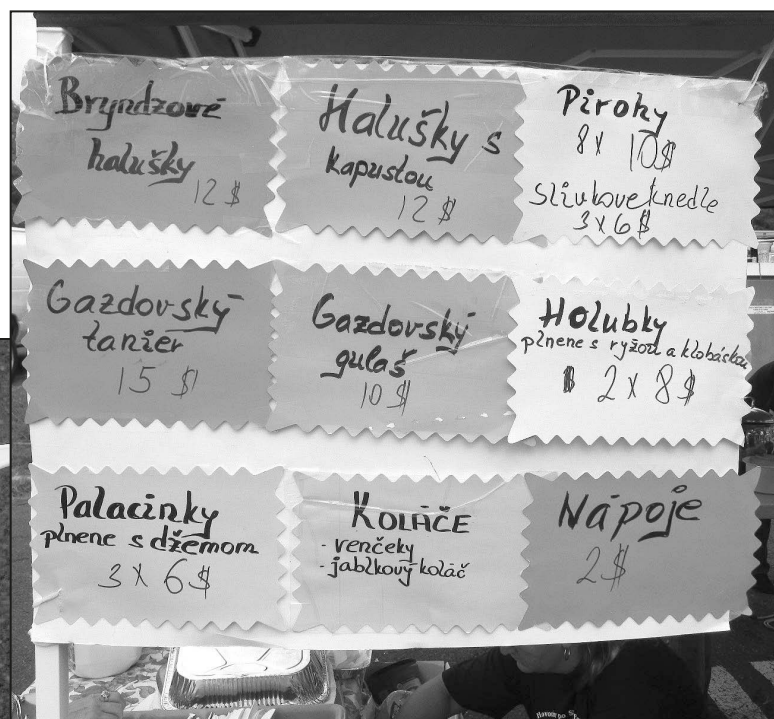 Bryndzové
halušky
12 $
Halušky s
kapustou
12 $
Pirohy
8 x 10$
Slivkove knedle
3 x 6$
Gazdovský
tanier
15 $
Gazdovský
gulaš
10 $
Holubky
plnene s ryžou a klobáskou
2 x 8$
Palacinky
plnene s džemom
3 x 6$
KOLÁČE
- venčeky
- jablkový koláč
Nápoje
2$